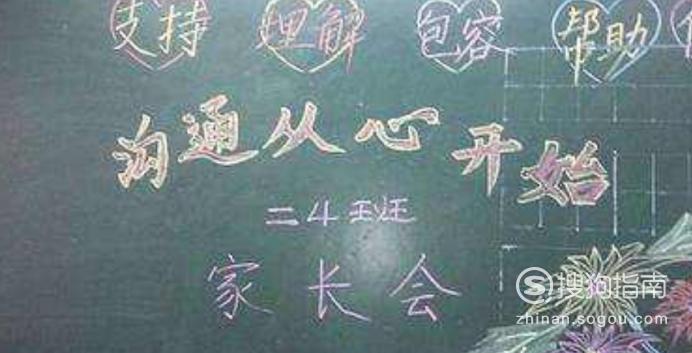 支持 理解 包容 帮助
沟通从心开始
二4班
家长会
搜狗指南
zhinan.sogou.com